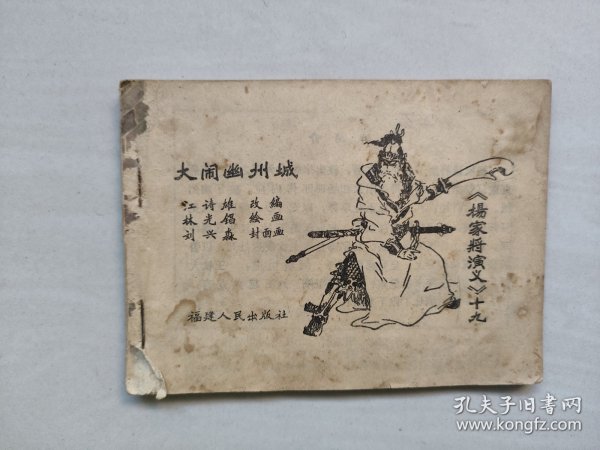 大闹幽州城
江诗雄 改编
林光锡 绘画
刘兴淼 封面画
福建人民出版社
《楊家將演义》十九
孔夫子旧书网
www.kongfz.com